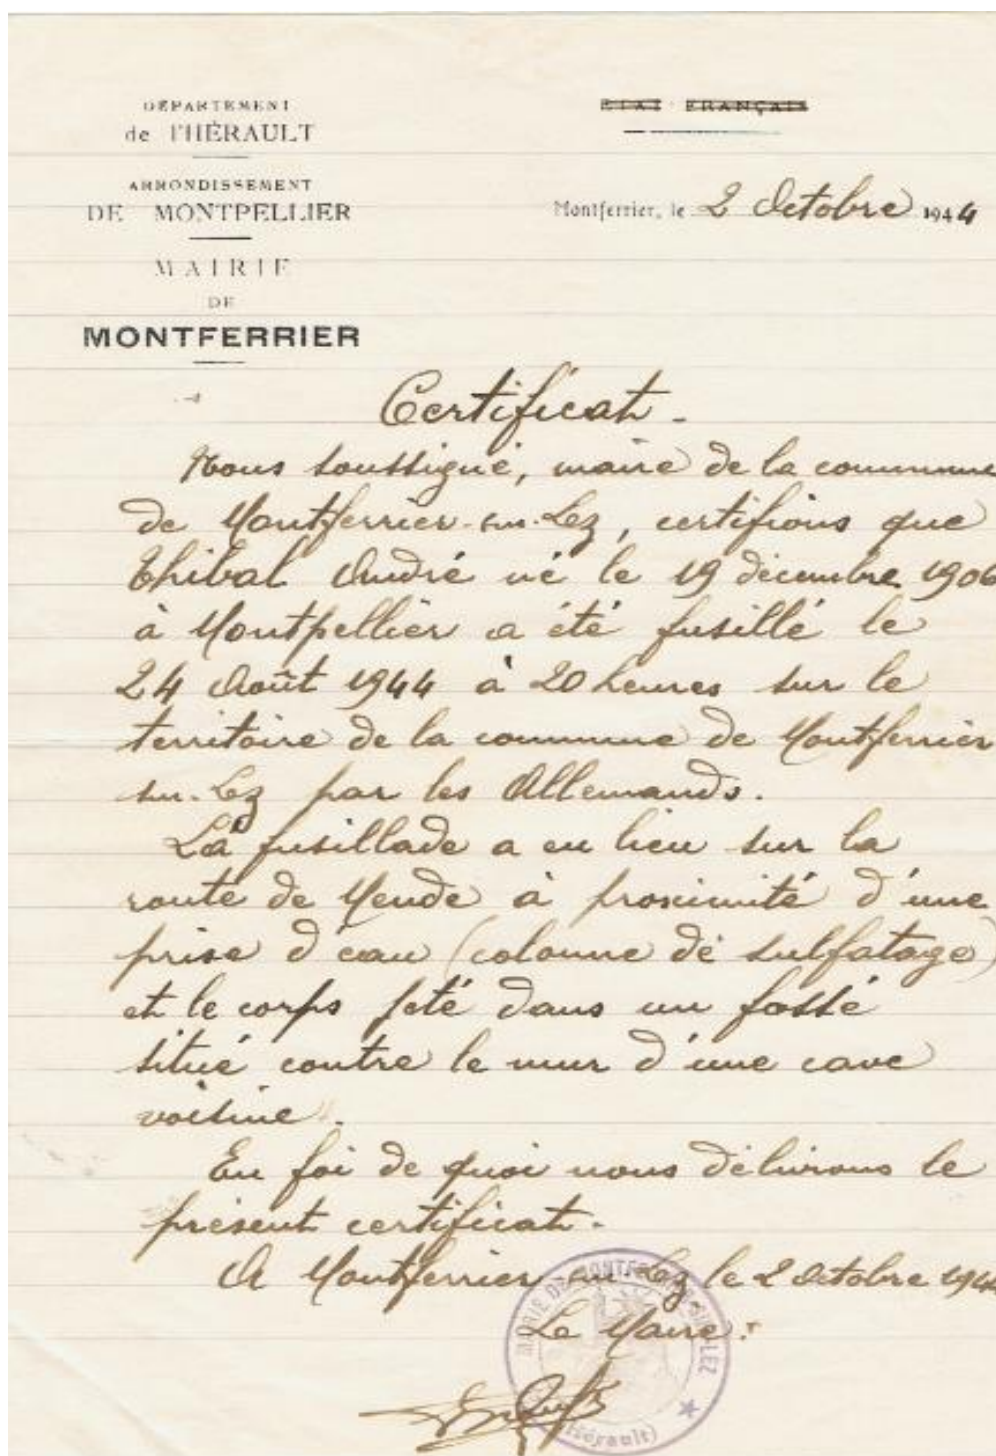 DÉPARTEMENT
de l'HÉRAULT
ARRONDISSEMENT
DE MONTPELLIER
MAIRIE
DE
MONTFERRIER
ETAT FRANÇAIS
Montferrier, le 2 Octobre 1944
Certificat.
Nous soussigné, maire de la commune
de Montferrier-sur-Lez, certifions que
Thibal André né le 19 décembre 1906
à Montpellier a été fusillé le
24 Août 1944 à 20 heures sur le
territoire de la commune de Montferrier
sur-Lez par les Allemands.
La fusillade a eu lieu sur la
route de Mende à proximité d'une
prise d'eau (colonne de sulfatage)
et le corps jeté dans un fossé
situé contre le mur d'une cave
voisine.
En foi de quoi nous délivrons le
présent certificat.
A Montferrier-sur-Lez le 2 Octobre 1944
Le Maire:
MAIRIE DE MONTFERRIER-SUR-LEZ
(Hérault)